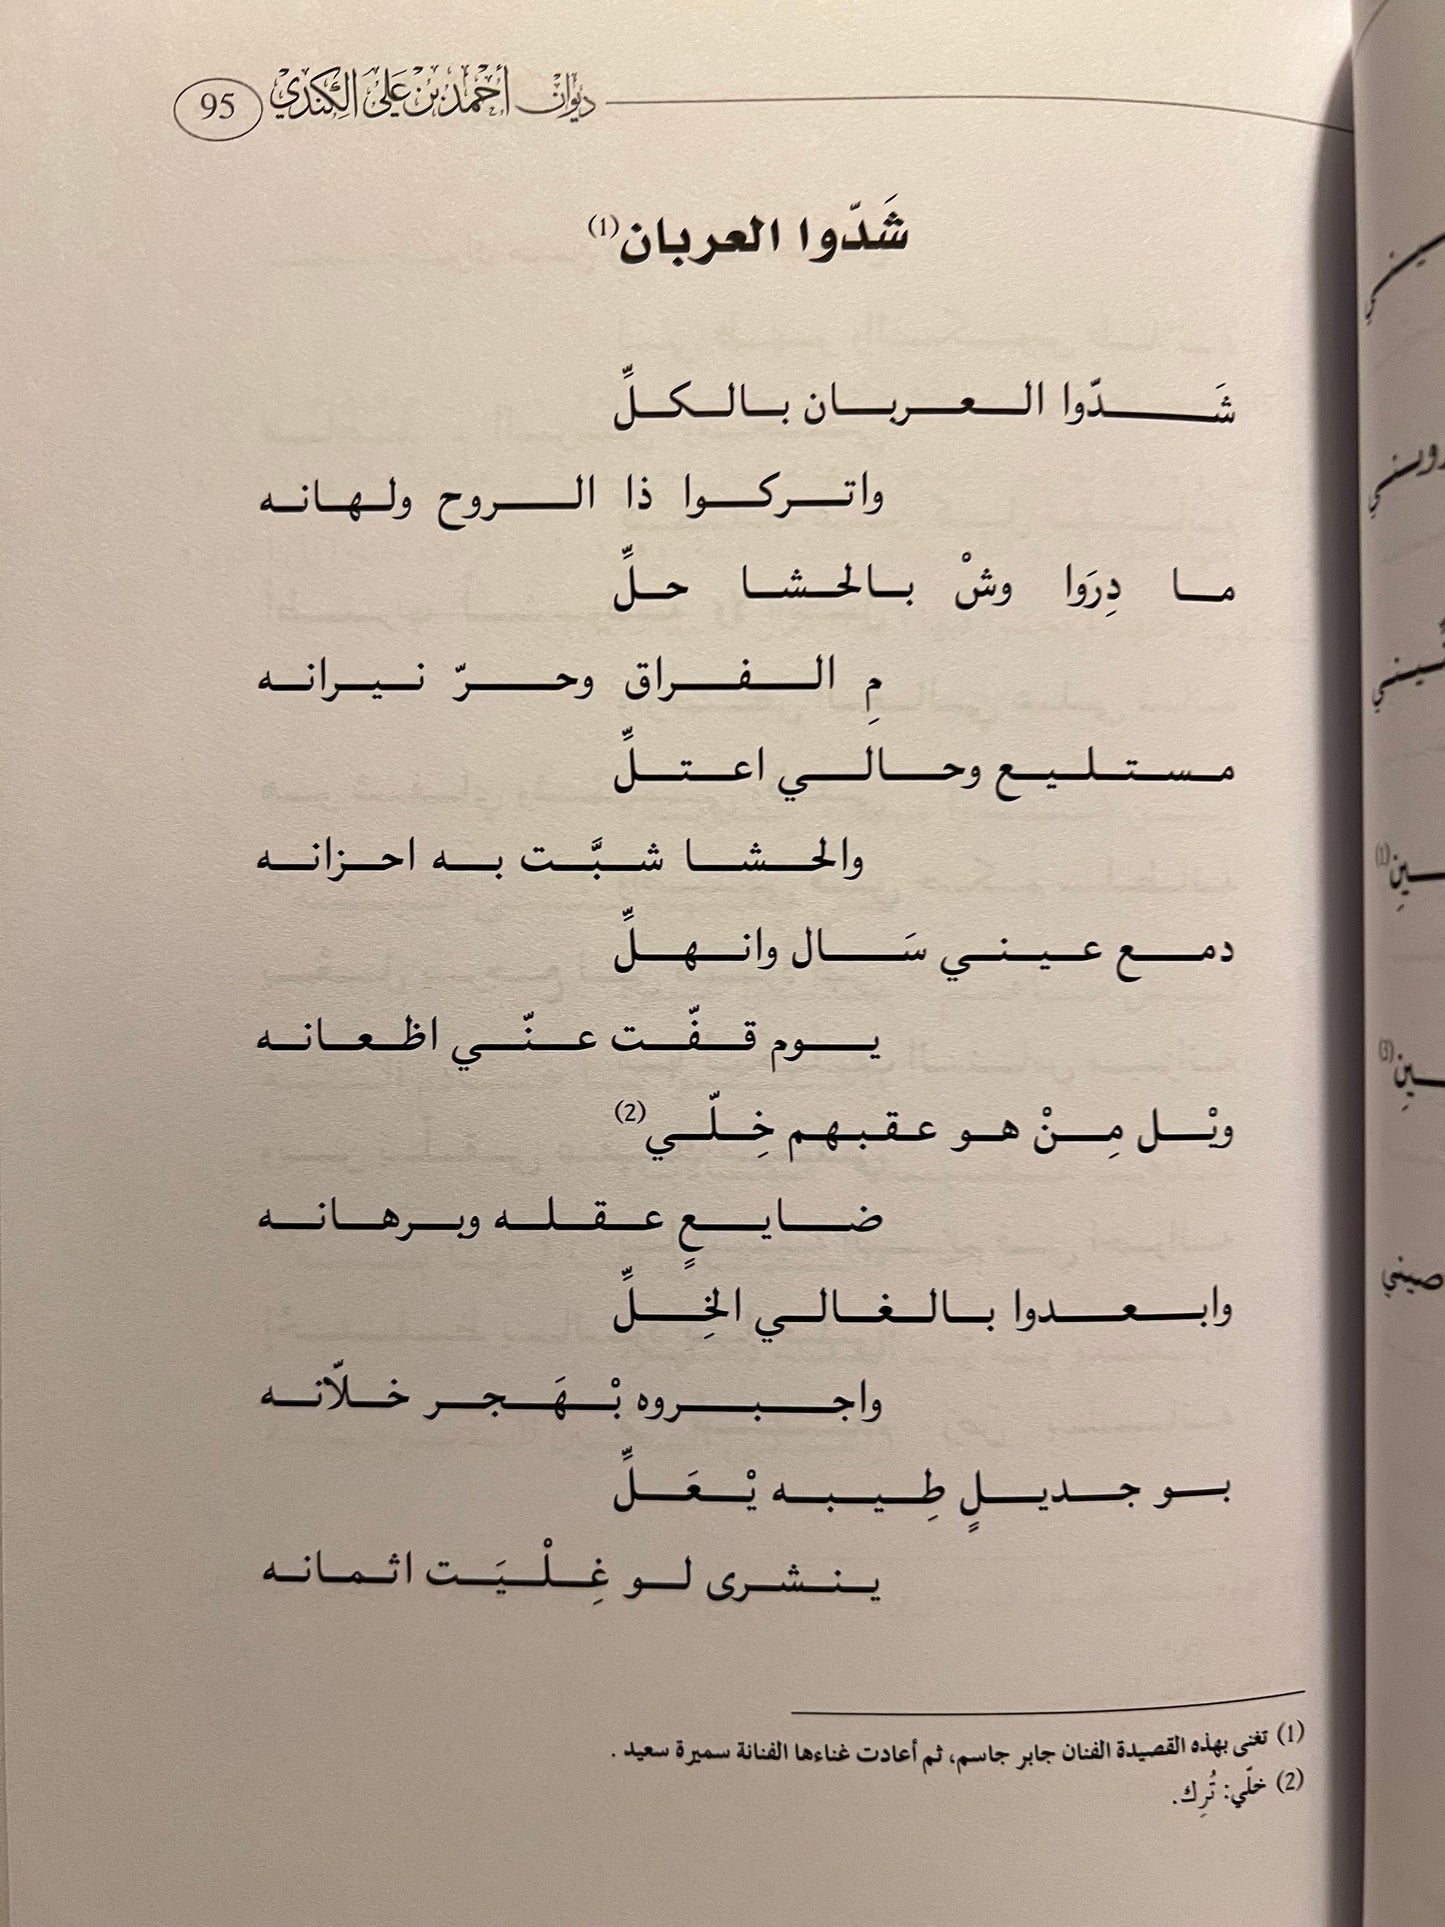 ديوان أحمد بن علي الكندي 95
شَدّوا العربان(1)
شَدّوا العربان بالكلِّ
واتركوا ذا الروح ولهانه
ما دِرَوا وشْ بالحشا حلِّ
مِ الفراق وحرّ نيرانه
مستليع وحالي اعتلِّ
والحشا شبَّت به احزانه
دمع عيني سَال وانهلِّ
يوم قفّت عنّي اظعانه
ويْل مِنْ هو عقبهم خِلّي(2)
ضايعٍ عقله وبرهانه
وابعدوا بالغالي الخِلِّ
واجبروه بْهَجر خلّانه
بو جديلٍ طِيبه يْعَلِّ
ينشرى لو غِلْيَت اثمانه
(1) تغنى بهذه القصيدة الفنان جابر جاسم، ثم أعادت غناءها الفنانة سميرة سعيد .
(2) خلّي: تُرِك.